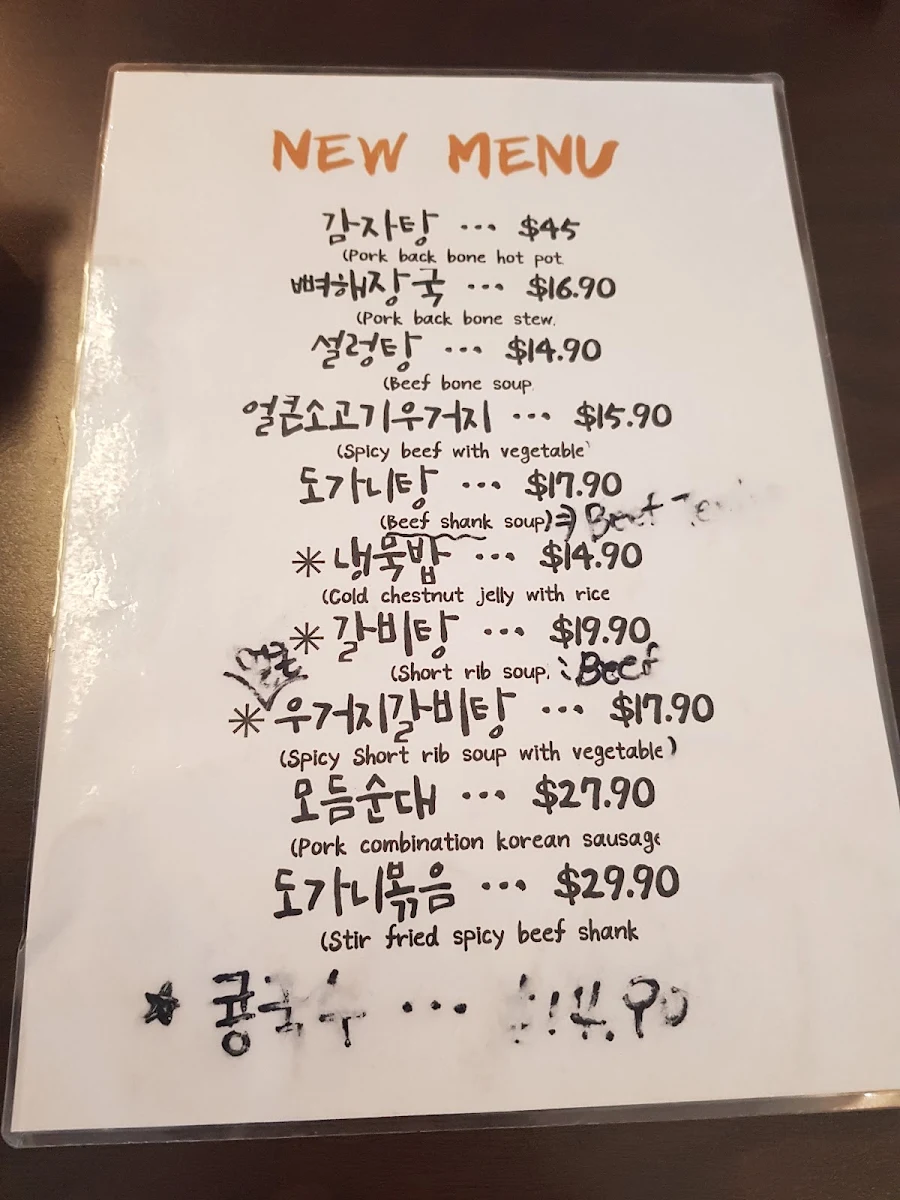 NEW MENU
감자탕 ... $45
(Pork back bone hot pot
뼈해장국 ... $16.90
(Pork back bone stew.
설렁탕 ... $14.90
(Beef bone soup
얼큰소고기우거지 ... $15.90
(Spicy beef with vegetable
도가니탕 ... $17.90
(Beef shank soup) ⇒ Beef
✳ 냉묵밥 ... $14.90
(Cold chestnut jelly with rice
✳ 갈비탕 ... $19.90
(Short rib soup. : Beef
✳ 우거지갈비탕 ... $17.90
(Spicy Short rib soup with vegetable)
모듬순대 ... $27.90
(Pork combination korean sausage
도가니볶음 ... $29.90
(Stir fried spicy beef shank
★ 콩국수 ... $14.90